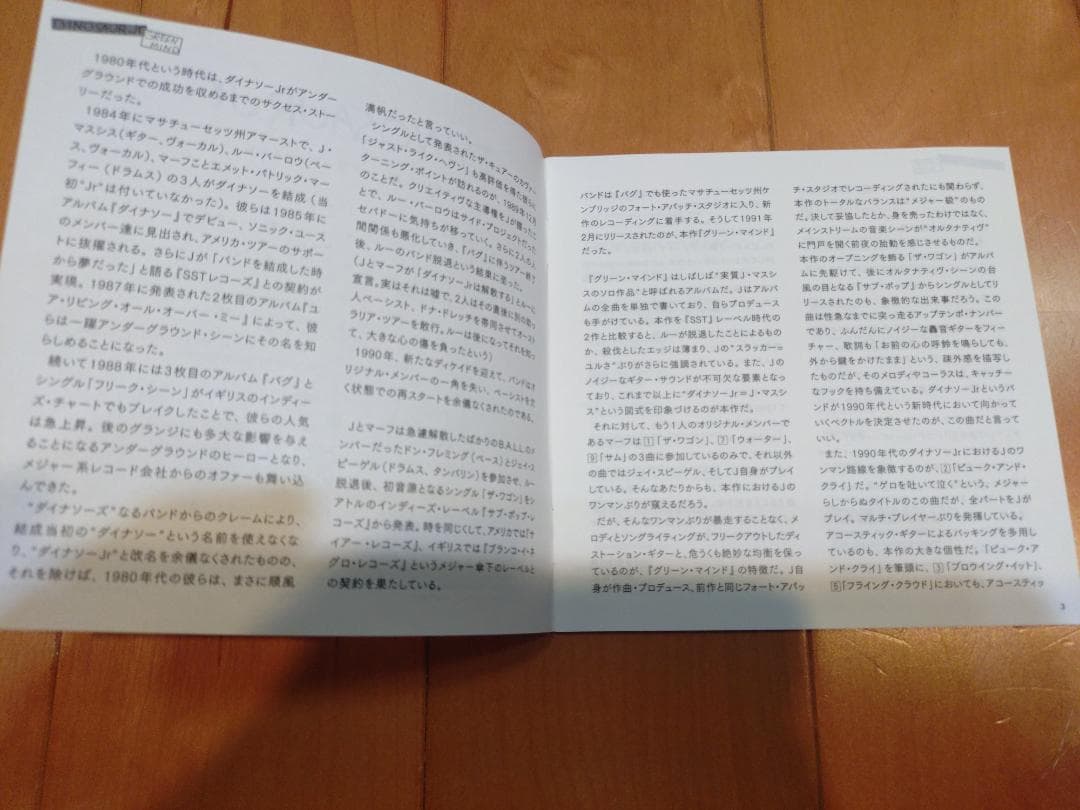 DINOSAUR JR
GREEN
MIND
1980年代という時代は、ダイナソーJrがアンダー
グラウンドでの成功を収めるまでのサクセス・ストー
リーだった。
1984年にマサチューセッツ州アマーストで、J・
マスシス(ギター、ヴォーカル)、ルー・バーロウ(ベー
ス、ヴォーカル)、マーフことエメット・パトリック・マー
フィー(ドラムス)の3人がダイナソーを結成(当
初“Jr”は付いていなかった)。彼らは1985年に
アルバム『ダイナソー』でデビュー、ソニック・ユース
のメンバー達に見出され、アメリカ・ツアーのサポー
トに抜擢される。さらにJが「バンドを結成した時
から夢だった」と語る『SSTレコーズ』との契約が
実現。1987年に発表された2枚目のアルバム『ユ
ア・リビング・オール・オーバー・ミー』によって、彼
らは一躍アンダーグラウンド・シーンにその名を知
らしめることになった。
続いて1988年には3枚目のアルバム『バグ』と
シングル「フリーク・シーン」がイギリスのインディー
ズ・チャートでもブレイクしたことで、彼らの人気
は急上昇。後のグランジにも多大な影響を与え
ることになるアンダーグラウンドのヒーローとなり、
メジャー系レコード会社からのオファーも舞い込
んできた。
“ダイナソーズ”なるバンドからのクレームにより、
結成当初の“ダイナソー”という名前を使えなくな
り、“ダイナソーJr”と改名を余儀なくされたものの、
それを除けば、1980年代の彼らは、まさに順風
満帆だったと言っていい。
シングルとして発表されたザ・キュアーのカヴァー
「ジャスト・ライク・ヘヴン」も高評価を得た彼らに
ターニング・ポイントが訪れるのが、1989年12月
のことだ。クリエイティヴな主導権をJが握ったこ
とで、ルー・バーロウはサイド・プロジェクトだった
セバドーに気持ちが移っていく。さらに2人の人
間関係も悪化していき、『バグ』に伴うツアー終了
後、ルーのバンド脱退という結果に至った。
(Jとマーフが「ダイナソーJrは解散する」とルーに
宣言。実はそれは嘘で、2人はその直後に別の助っ
人ベーシスト、ドナ・ドレッチを帯同させてオースト
ラリア・ツアーを敢行。ルーは後になってそれを知っ
て、大きな心の傷を負ったという)
1990年、新たなディケイドを迎えて、バンドはオ
リジナル・メンバーの一角を失い、ベーシストを欠
く状態での再スタートを余儀なくされたのである。
Jとマーフは急遽解散したばかりのB.A.L.L.のメ
ンバーだったドン・フレミング(ベース)とジェイ・ス
ピーゲル(ドラムス、タンバリン)を参加させ、ルー
脱退後、初音源となるシングル「ザ・ワゴン」をシ
アトルのインディーズ・レーベル『サブ・ポップ・レ
コーズ』から発表。時を同じくして、アメリカでは『サ
イアー・レコーズ』、イギリスでは『ブランコ・イ・ネ
グロ・レコーズ』というメジャー傘下のレーベルと
の契約を果たしている。
バンドは『バグ』でも使ったマサチューセッツ州ケン
ブリッジのフォート・アパッチ・スタジオに入り、新
作のレコーディングに着手する。そうして1991年
2月にリリースされたのが、本作『グリーン・マインド』
だった。
『グリーン・マインド』はしばしば“実質J・マスシス
のソロ作品”と呼ばれるアルバムだ。Jはアルバム
の全曲を単独で書いており、自らプロデュース
も手がけている。本作を『SST』レーベル時代の
2作と比較すると、ルーが脱退したことによるもの
か、殺伐としたエッジは薄まり、Jの“スラッカー＝
ユルさ”ぶりがさらに強調されている。また、Jの
ノイジーなギター・サウンドが不可欠な要素となっ
ており、これまで以上に“ダイナソーJr＝J・マスシ
ス”という図式を印象づけるのが本作だ。
それに対して、もう1人のオリジナル・メンバーで
あるマーフは[1]「ザ・ワゴン」、[7]「ウォーター」、
[9]「サム」の3曲に参加しているのみで、それ以外
の曲ではジェイ・スピーゲル、そしてJ自身がプレイ
している。そんなあたりからも、本作におけるJのワ
ンマンぶりが窺えるだろう。
だが、そんなワンマンぶりが暴走することなく、メ
ロディとソングライティングが、フリークアウトしたディ
ストーション・ギターと、危うくも絶妙な均衡を保っ
ているのが、『グリーン・マインド』の特徴だ。J自
身が作曲・プロデュース、前作と同じフォート・アパッ
チ・スタジオでレコーディングされたにも関わらず、
本作のトータルなバランスは“メジャー級”のもの
だ。決して妥協したとか、身を売ったわけではなく、
メインストリームの音楽シーンが“オルタナティヴ”
に門戸を開く前夜の胎動を感じさせるものだ。
本作のオープニングを飾る「ザ・ワゴン」がアルバ
ムに先駆けて、後にオルタナティヴ・シーンの台
風の目となる『サブ・ポップ』からシングルとしてリ
リースされたのも、象徴的な出来事だろう。この
曲は性急なまでに突っ走るアップテンポ・ナンバー
であり、ふんだんにノイジーな轟音ギターをフィー
チャー、歌詞も「お前の心の呼鈴を鳴らしても、
外から鍵をかけたまま」という、疎外感を描写し
たものだが、そのメロディやコーラスは、キャッチー
なフックを持ち備えている。ダイナソーJrというバ
ンドが1990年代という新時代において向かって
いくベクトルを決定させたのが、この曲だと言って
いい。
また、1990年代のダイナソーJrにおけるJのワ
ンマン路線を象徴するのが、[2]「ピューク・アンド・
クライ」だ。“ゲロを吐いて泣く”という、メジャー
らしからぬタイトルのこの曲だが、全パートをJが
プレイ。マルチ・プレイヤーぶりを発揮している。
アコースティック・ギターによるバッキングを多用
しているのも、本作の大きな個性だ。「ピューク・ア
ンド・クライ」を筆頭に、[3]「ブロウイング・イット」、
[5]「フライング・クラウド」においても、アコースティッ
3